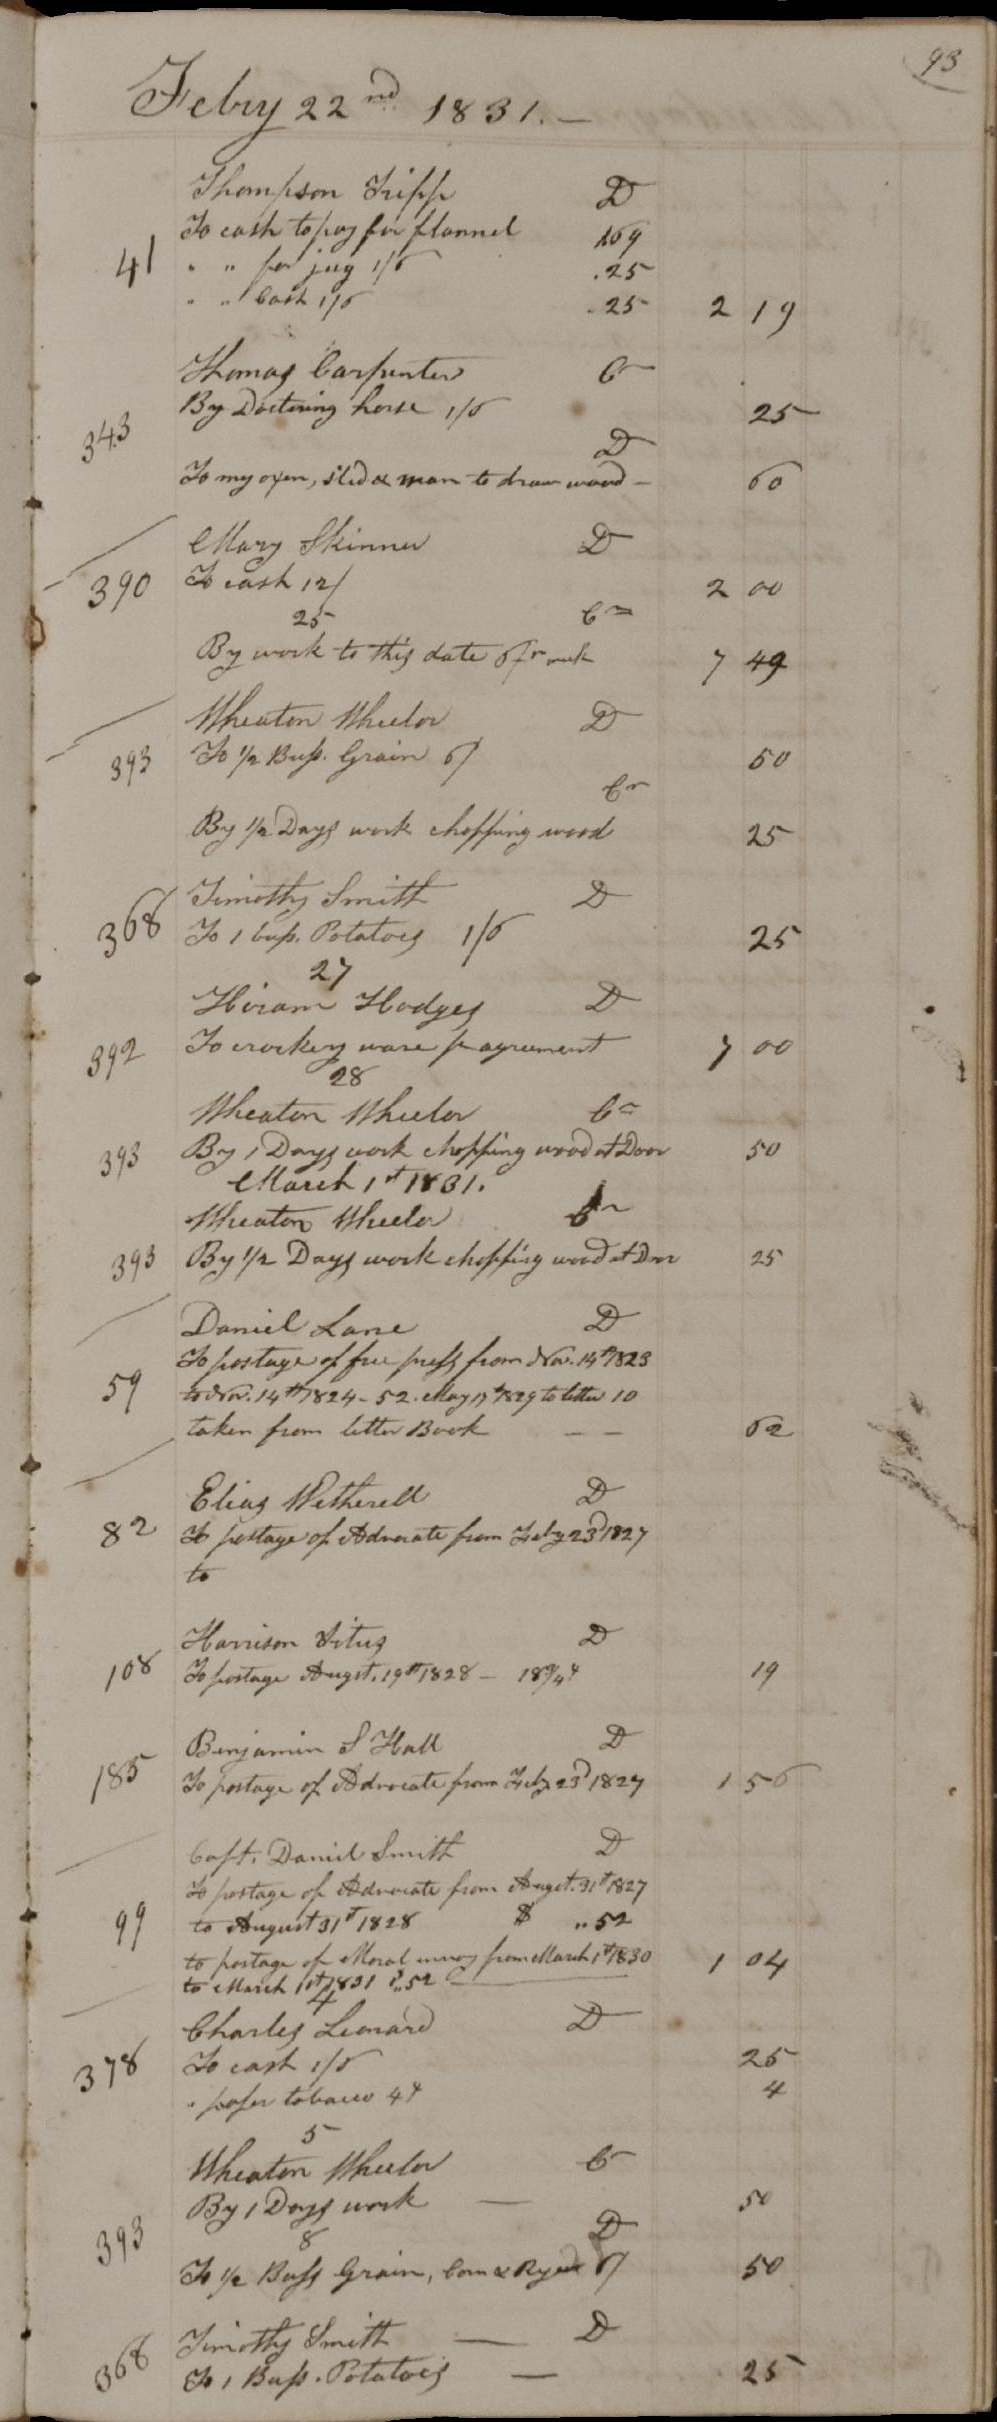 93
Feby 22nd 1831. —
Thompson Tripp D
To cash to pay for flannel 1.69
41 " " for jug 1/6 .25
" " Cash 1/6 .25 2 19
Thomas Carpenter Cr
By Doctoring horse 1/6 25
343 D
To my oxen, sled & man to draw wood — 60
Mary Skinner D
390 To cash 12/ 2 00
25 Cr
By work to this date 6/ pr week 7 49
Wheaton Wheelor D
393 To 1/2 Bush. Grain 6/ 50
Cr
By 1/2 Days work chopping wood 25
Timothy Smith D
368 To 1 bush. Potatoes 1/6 25
27
Hiram Hodges D
392 To crockery ware pr agreement 7 00
28
Wheaton Wheelor Cr
393 By 1 Days work chopping wood at Door 50
March 1st 1831.
Wheaton Wheelor Cr
393 By 1/2 Days work chopping wood at Door 25
Daniel Lane D
To postage of free press from Nov. 14th 1823
59 to Nov. 14th 1824 - 52. May 17th 1829 to letter 10
taken from letter Book — — 62
Elias Witherell D
82 To postage of Advocate from Feby 23d 1827
to
Harrison Titus D
108 To postage Augst. 19th 1828 — 18 3/4 19
Benjamin S Hall D
185 To postage of Advocate from Feby 23d 1827 1 56
Capt. Daniel Smith D
To postage of Advocate from Augst. 31st 1827
99 to August 31st 1828 $ ,,52
to postage of Moral from March 1st 1830 1 04
to March 1st 1831 ,,52
4
Charles Leonard D
378 To cash 1/6 25
" paper tobacco 4 4
5
Wheaton Wheelor Cr
By 1 Days work — 50
393 8 D
To 1/2 Bush Grain, Corn & Rye 6/ 50
Timothy Smith — D
368 To 1 Bush. Potatoes — 25